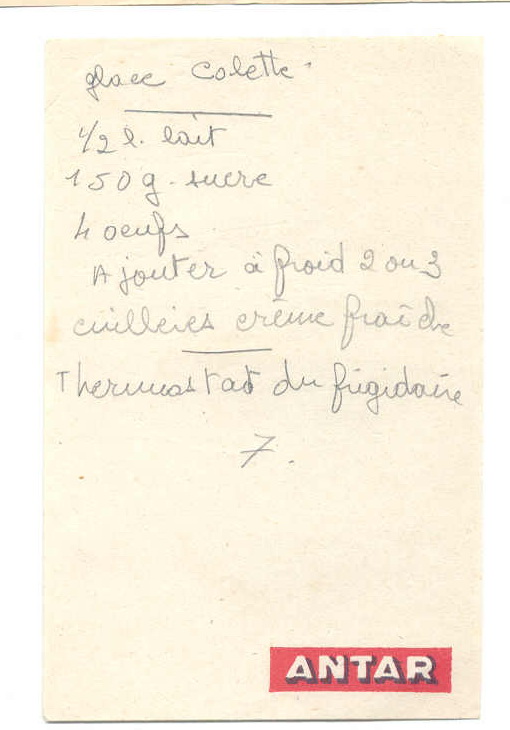 glace Colette
1/2 l. lait
150 g. sucre
4 oeufs
Ajouter à froid 2 ou 3
cuillères crème fraîche
Thermostat du frigidaire
7.
ANTAR